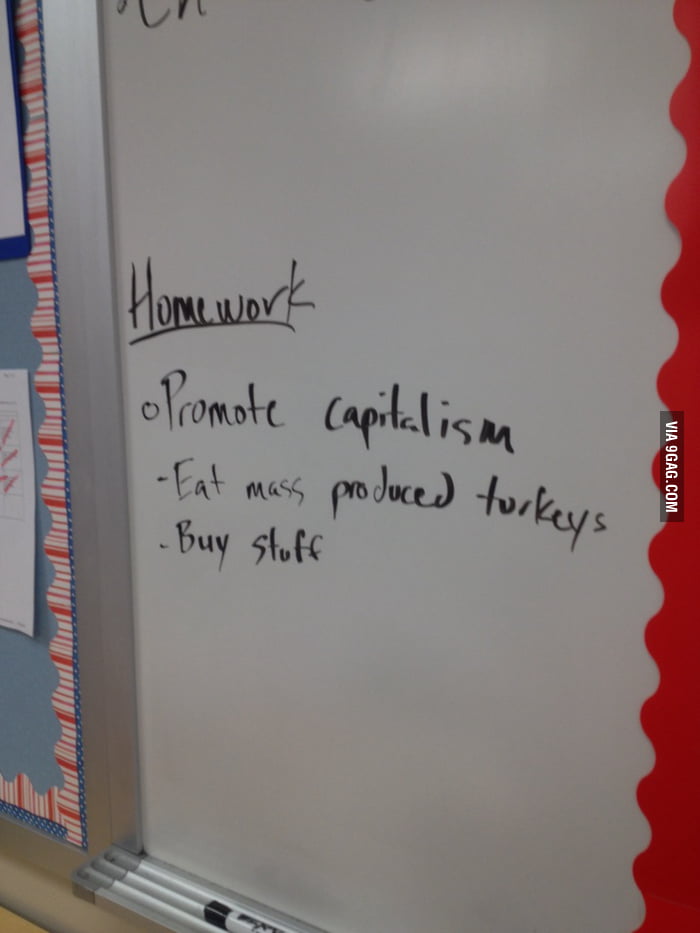 Homework
Promote capitalism
- Eat mass produced turkeys
- Buy stuff
VIA 9GAG.COM